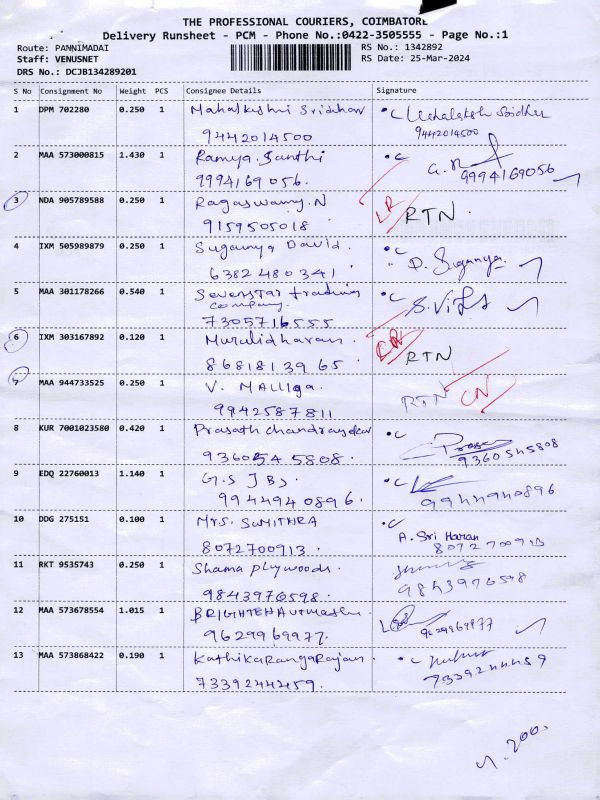 THE PROFESSIONAL COURIERS, COIMBATORE
Delivery Runsheet - PCM - Phone No.:0422-3505555 - Page No.:1
Route: PANNIMADAI RS No.: 1342892
Staff: VENUSNET RS Date: 25-Mar-2024
DRS No.: DCJB134289201
S No Consignment No Weight PCS Consignee Details Signature
1 DPM 702280 0.250 1 Mahalkshni Sridhar
9442014500 9442014500
2 MAA 573000815 1.430 1 Ramya.Santhi
9994169056. 9994169056
3 NDA 905789588 0.250 1 Ragaswamy.N LR RTN.
9159505018
4 IXM 505989879 0.250 1 Suganya David. D. Suganya.
6382480341
5 MAA 301178266 0.540 1 Sevenstar trading
company.
7305716555
6 IXM 303167892 0.120 1 Muralidharan. RTN
8681813965
7 MAA 944733525 0.250 1 V. Malliga. RTN CN
9942587811
8 KUR 7001023580 0.420 1 Prasath chandrasekar
9360545808. 9360545808
9 EDQ 22760013 1.140 1 G.S JBS.
9944940896. 9944940896
10 DDG 275151 0.100 1 Mrs. SUMITHRA A. Sri Haran
8072700913. 8072700913
11 RKT 9535743 0.250 1 Shama plywoods.
9843976598. 9843976598
12 MAA 573678554 1.015 1
9629969977. 9629969977
13 MAA 573868422 0.190 1 KathikaRangaRajan
7339244459. 7339244459
200.